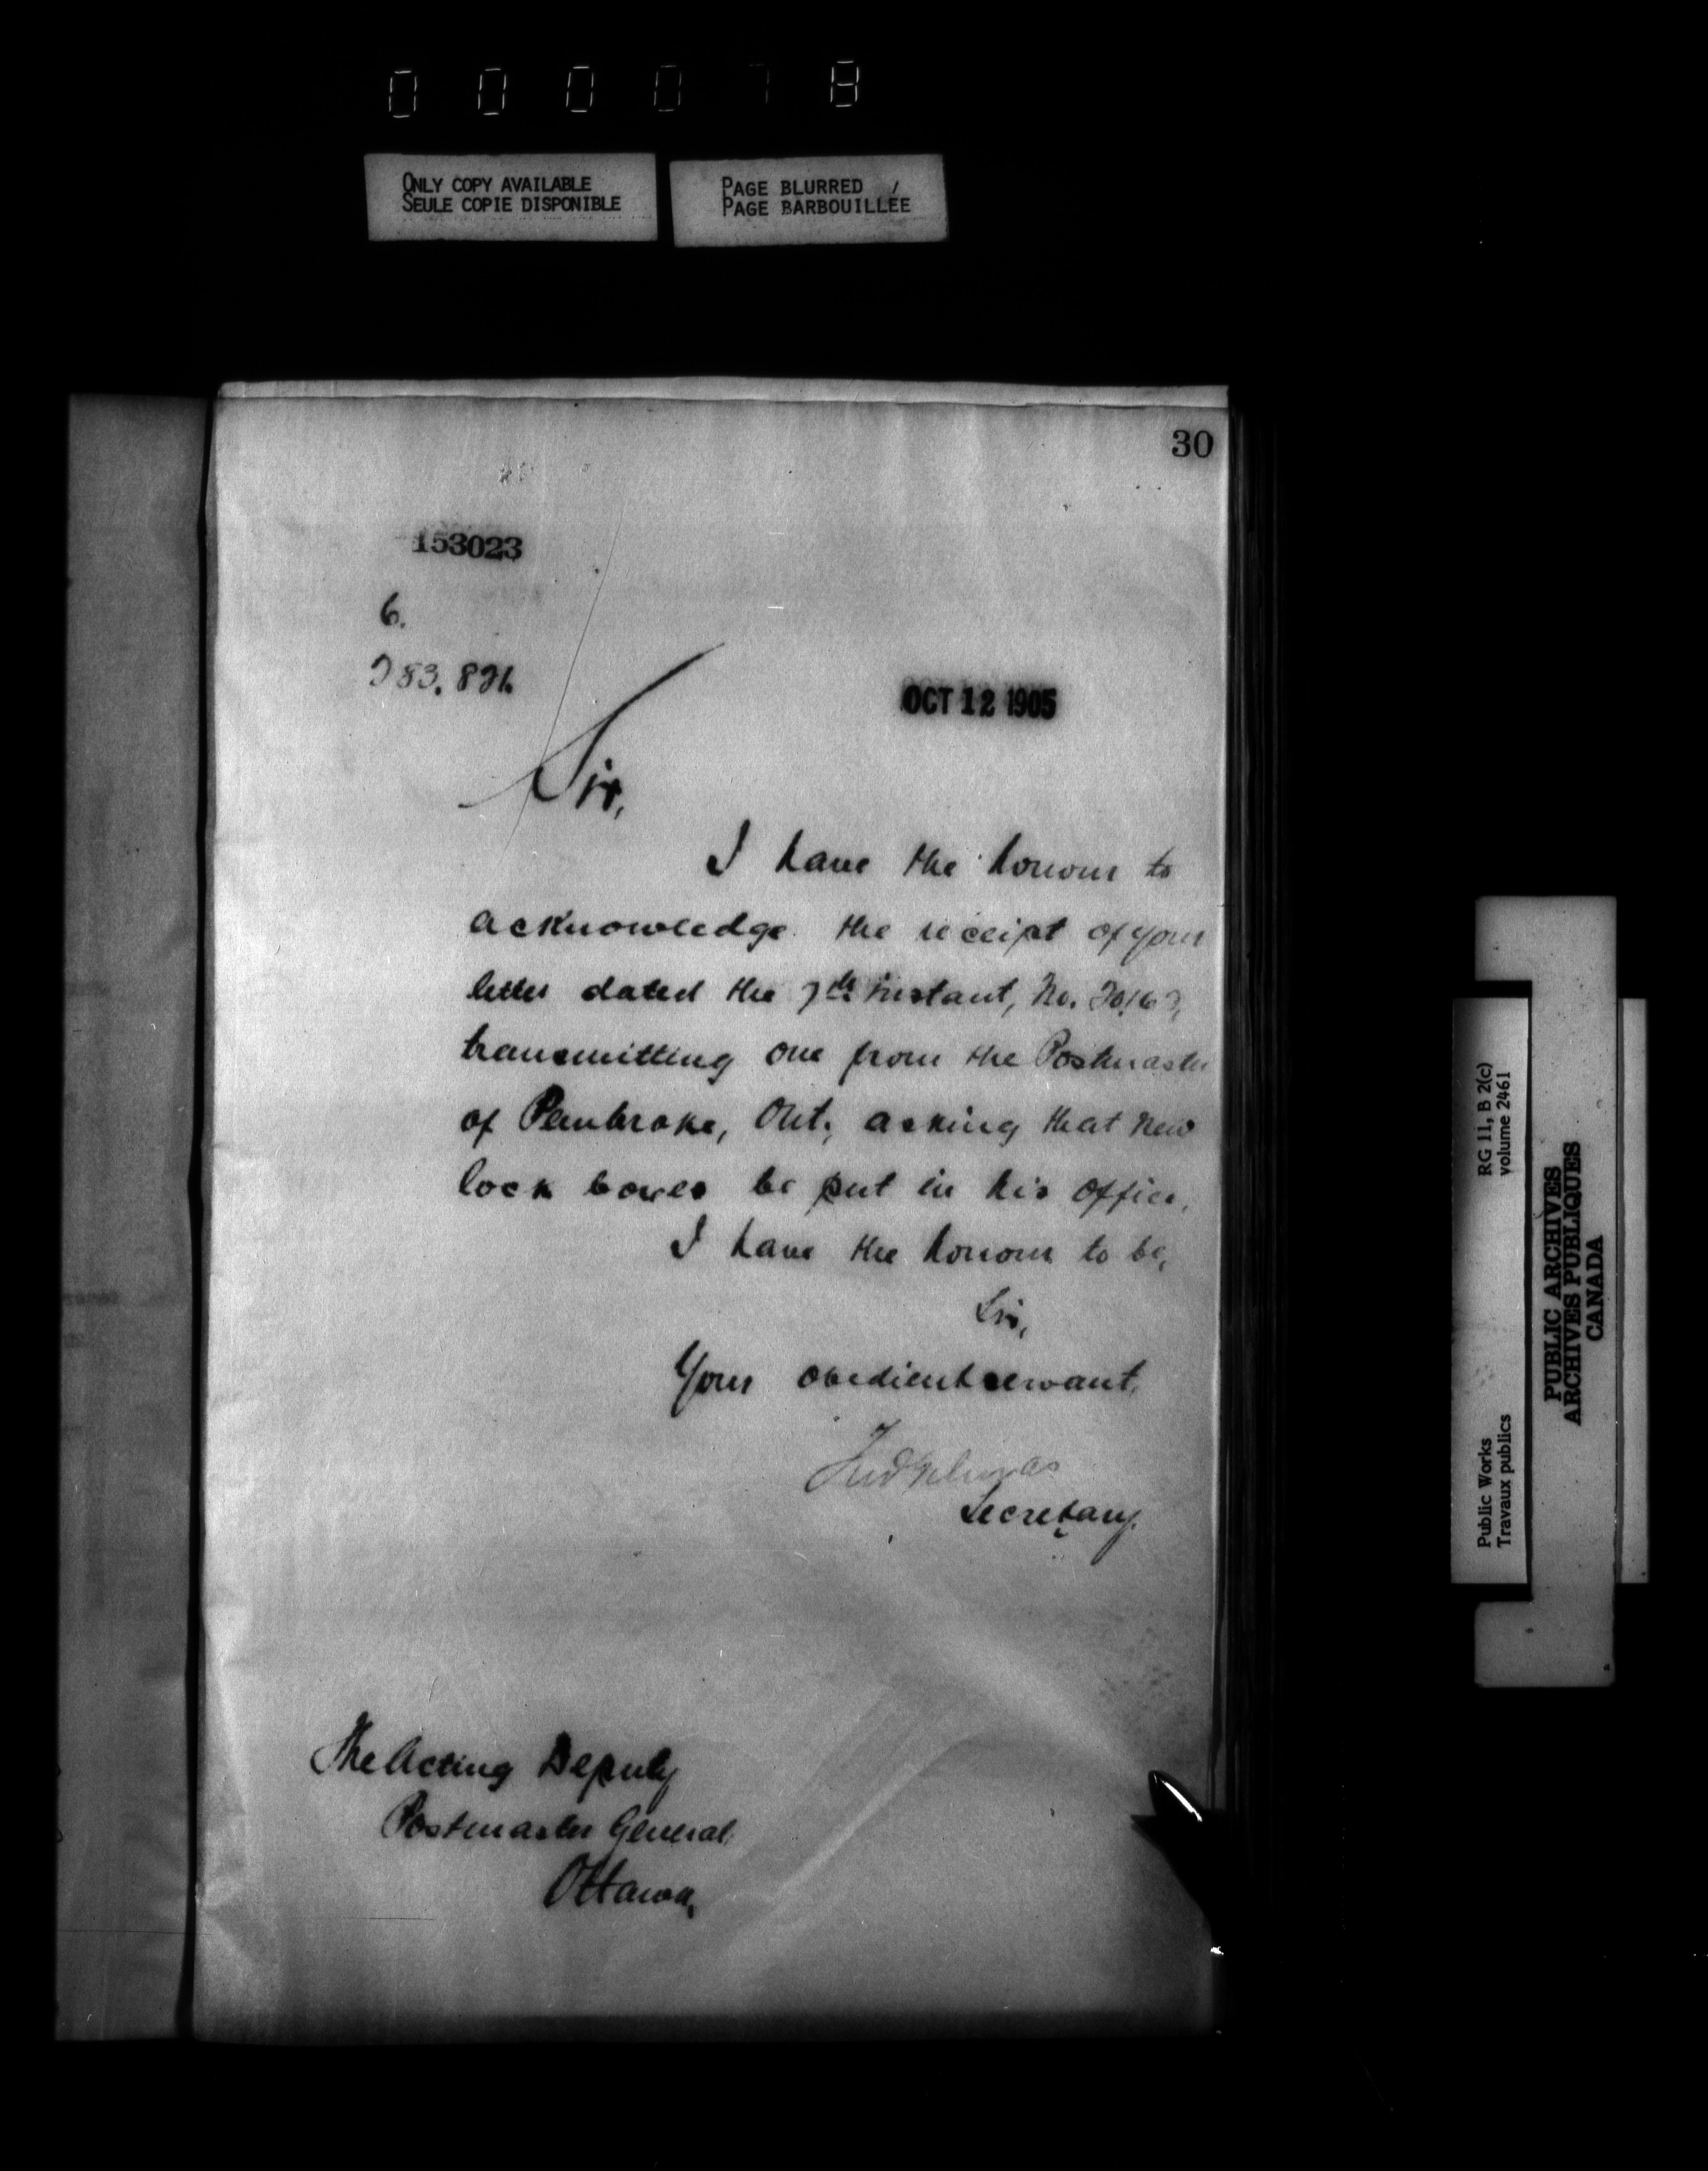 000078
ONLY COPY AVAILABLE
SEULE COPIE DISPONIBLE
PAGE BLURRED
PAGE BARBOUILLÉE
30
153023
6.
OCT 12 1905
Sir,
I have the honour to
acknowledge the receipt of your
letter dated the 7th instant, No.
transmitting one from the Postmaster
of Pembroke, Ont., asking that new
lock boxes be put in his office.
I have the honour to be,
Sir,
Your obedient servant,
Secretary.
The Acting Deputy
Postmaster General,
Ottawa.
RG 11, B 2(c)
volume 2461
Public Works
Travaux publics
PUBLIC ARCHIVES
ARCHIVES PUBLIQUES
CANADA